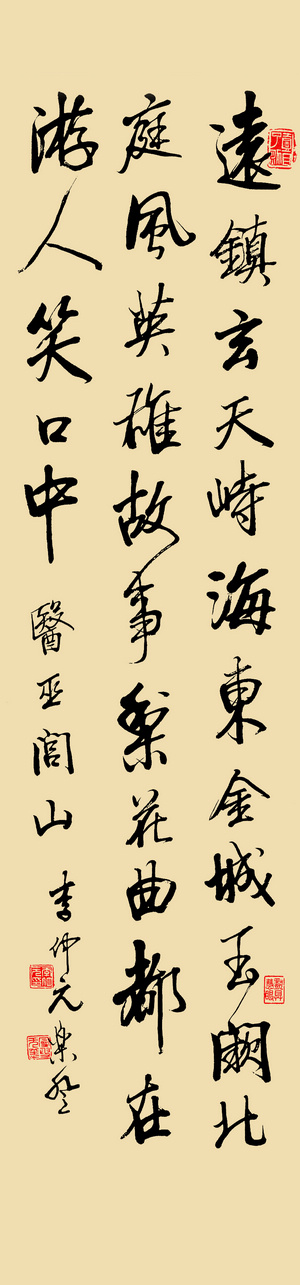 遠鎮玄天峙海東金城玉闕北
庭風英雄故事梨花曲都在
游人笑口中
醫巫閭山
李仲元樂登